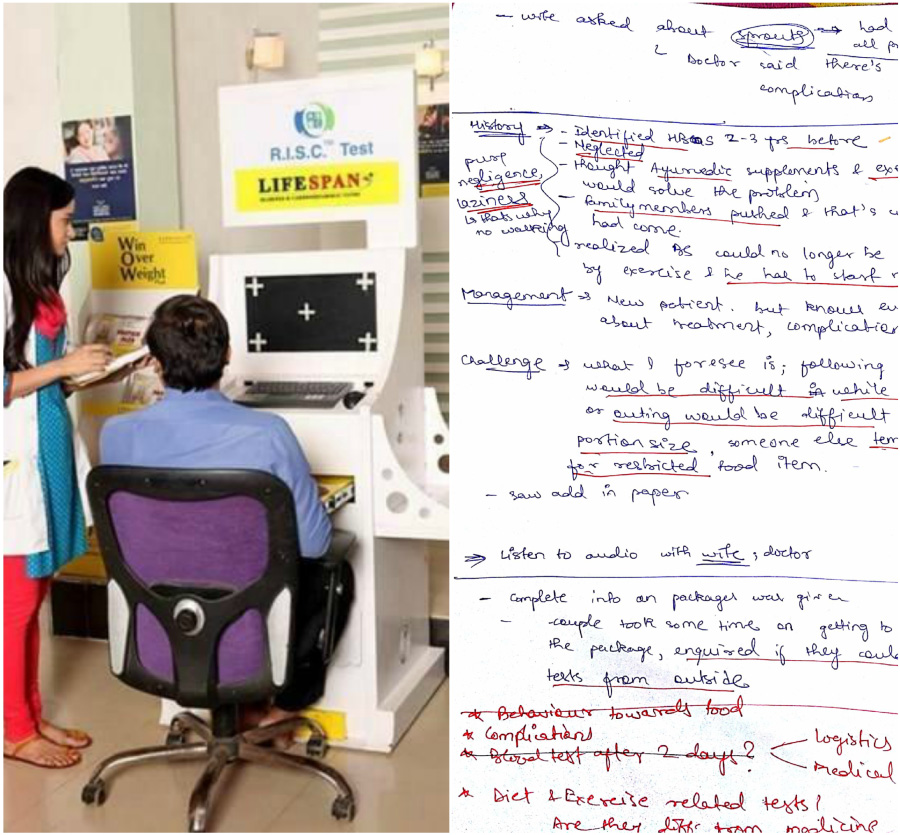 R.I.S.C.™ Test
LIFESPAN
DIABETES & CARDIOMETABOLIC CLINIC
Win
Over
Weight
- wife asked about sprouts → had
all p
Doctor said there's
complications
History ⇒ - Identified HBS 2-3 yrs before
- Neglected
- thought Ayurvedic supplements & ex
would solve the problem
pure
negligence,
laziness
↳ that's why
no walking
- family members pushed & that's w
had come.
- realized BS could no longer be
by exercise & he has to start
Management → New patient. but knows ev
about treatment, complication
Challenge → what I foresee is; following
would be difficult in while
or outing would be difficult
portion size, someone else tem
for restricted food item.
- saw add in paper
⇒ Listen to audio with wife, doctor
- complete info on packages was given
- couple took some time on getting to
the package, enquired if they coul
tests from outside
* Behaviour towards food
* Compliations
* Blood test after 2 days?
Logistics
Medical
* Diet & Exercise related tests?
Are they diff from medicine